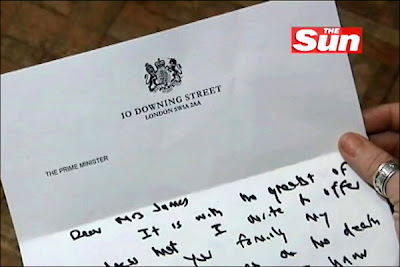 THE
Sun
10 DOWNING STREET
LONDON SW1A 2AA
THE PRIME MINISTER
Dear Mrs James
It is with the greatest of
that I write to offer
you family my
on the death
I know